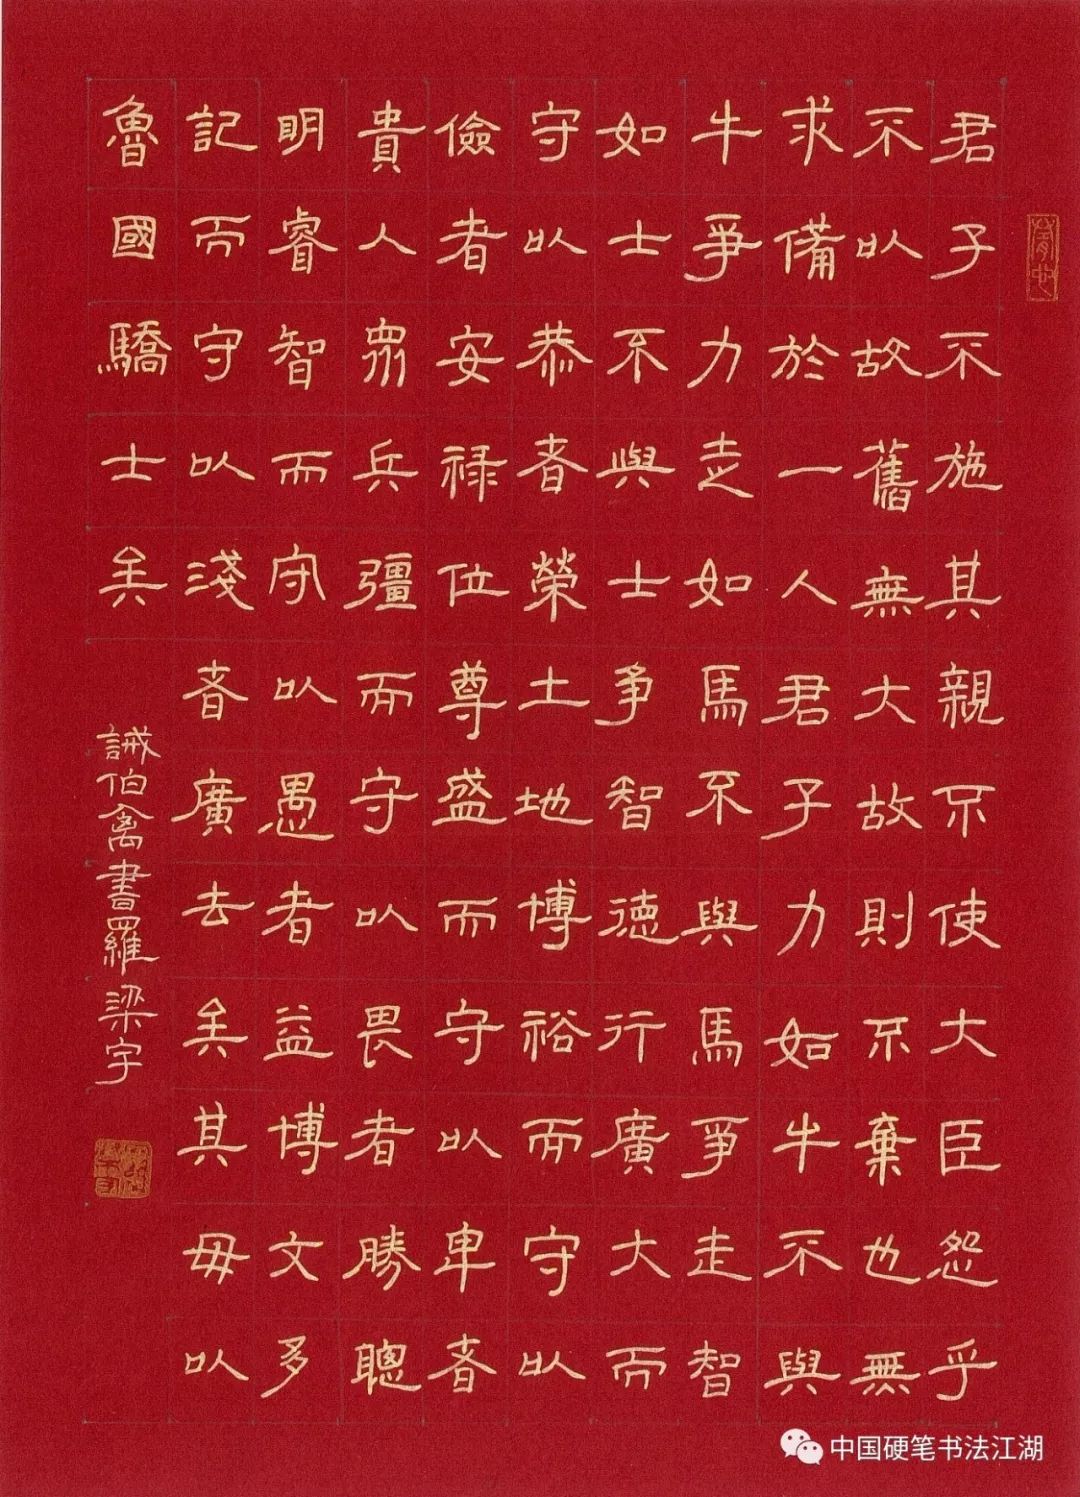 君子不施其親不使大臣怨乎
不以故舊無大故則不棄也無
求備於一人君子力如牛不與
牛爭力走如馬不與馬爭走智
如士不與士爭智德行廣大而
守以恭者榮土地博裕而守以
儉者安祿位尊盛而守以卑者
貴人眾兵彊而守以畏者勝聰
明睿智而守以愚者益博文多
記而守以淺者廣去矣其毋以
魯國驕士矣
誡伯禽書羅梁宇
中国硬笔书法江湖